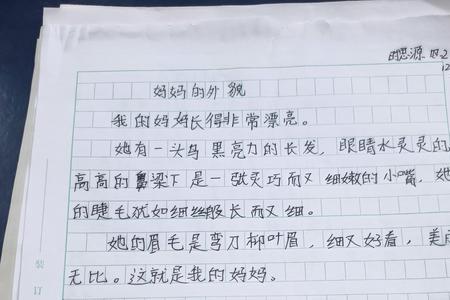 时思源
妈妈的外貌
我的妈妈长得非常漂亮。
她有一头乌黑亮力的长发，眼睛水灵灵的
高高的鼻梁下是一张灵巧而又细嫩的小嘴，她
的睫毛就如细丝般长而又细。
她的眉毛是弯刀柳叶眉，细又好看，美
无比。这就是我的妈妈。
装
订